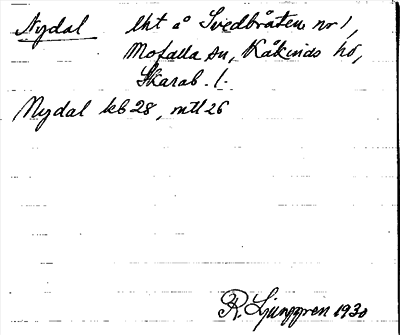 Nydal lht å Svedbråten nr 1,
Mofalla sn, Kåkinds hd,
Skarab. l.
Nydal kb 28, mtl 26
R. Ljunggren 1930